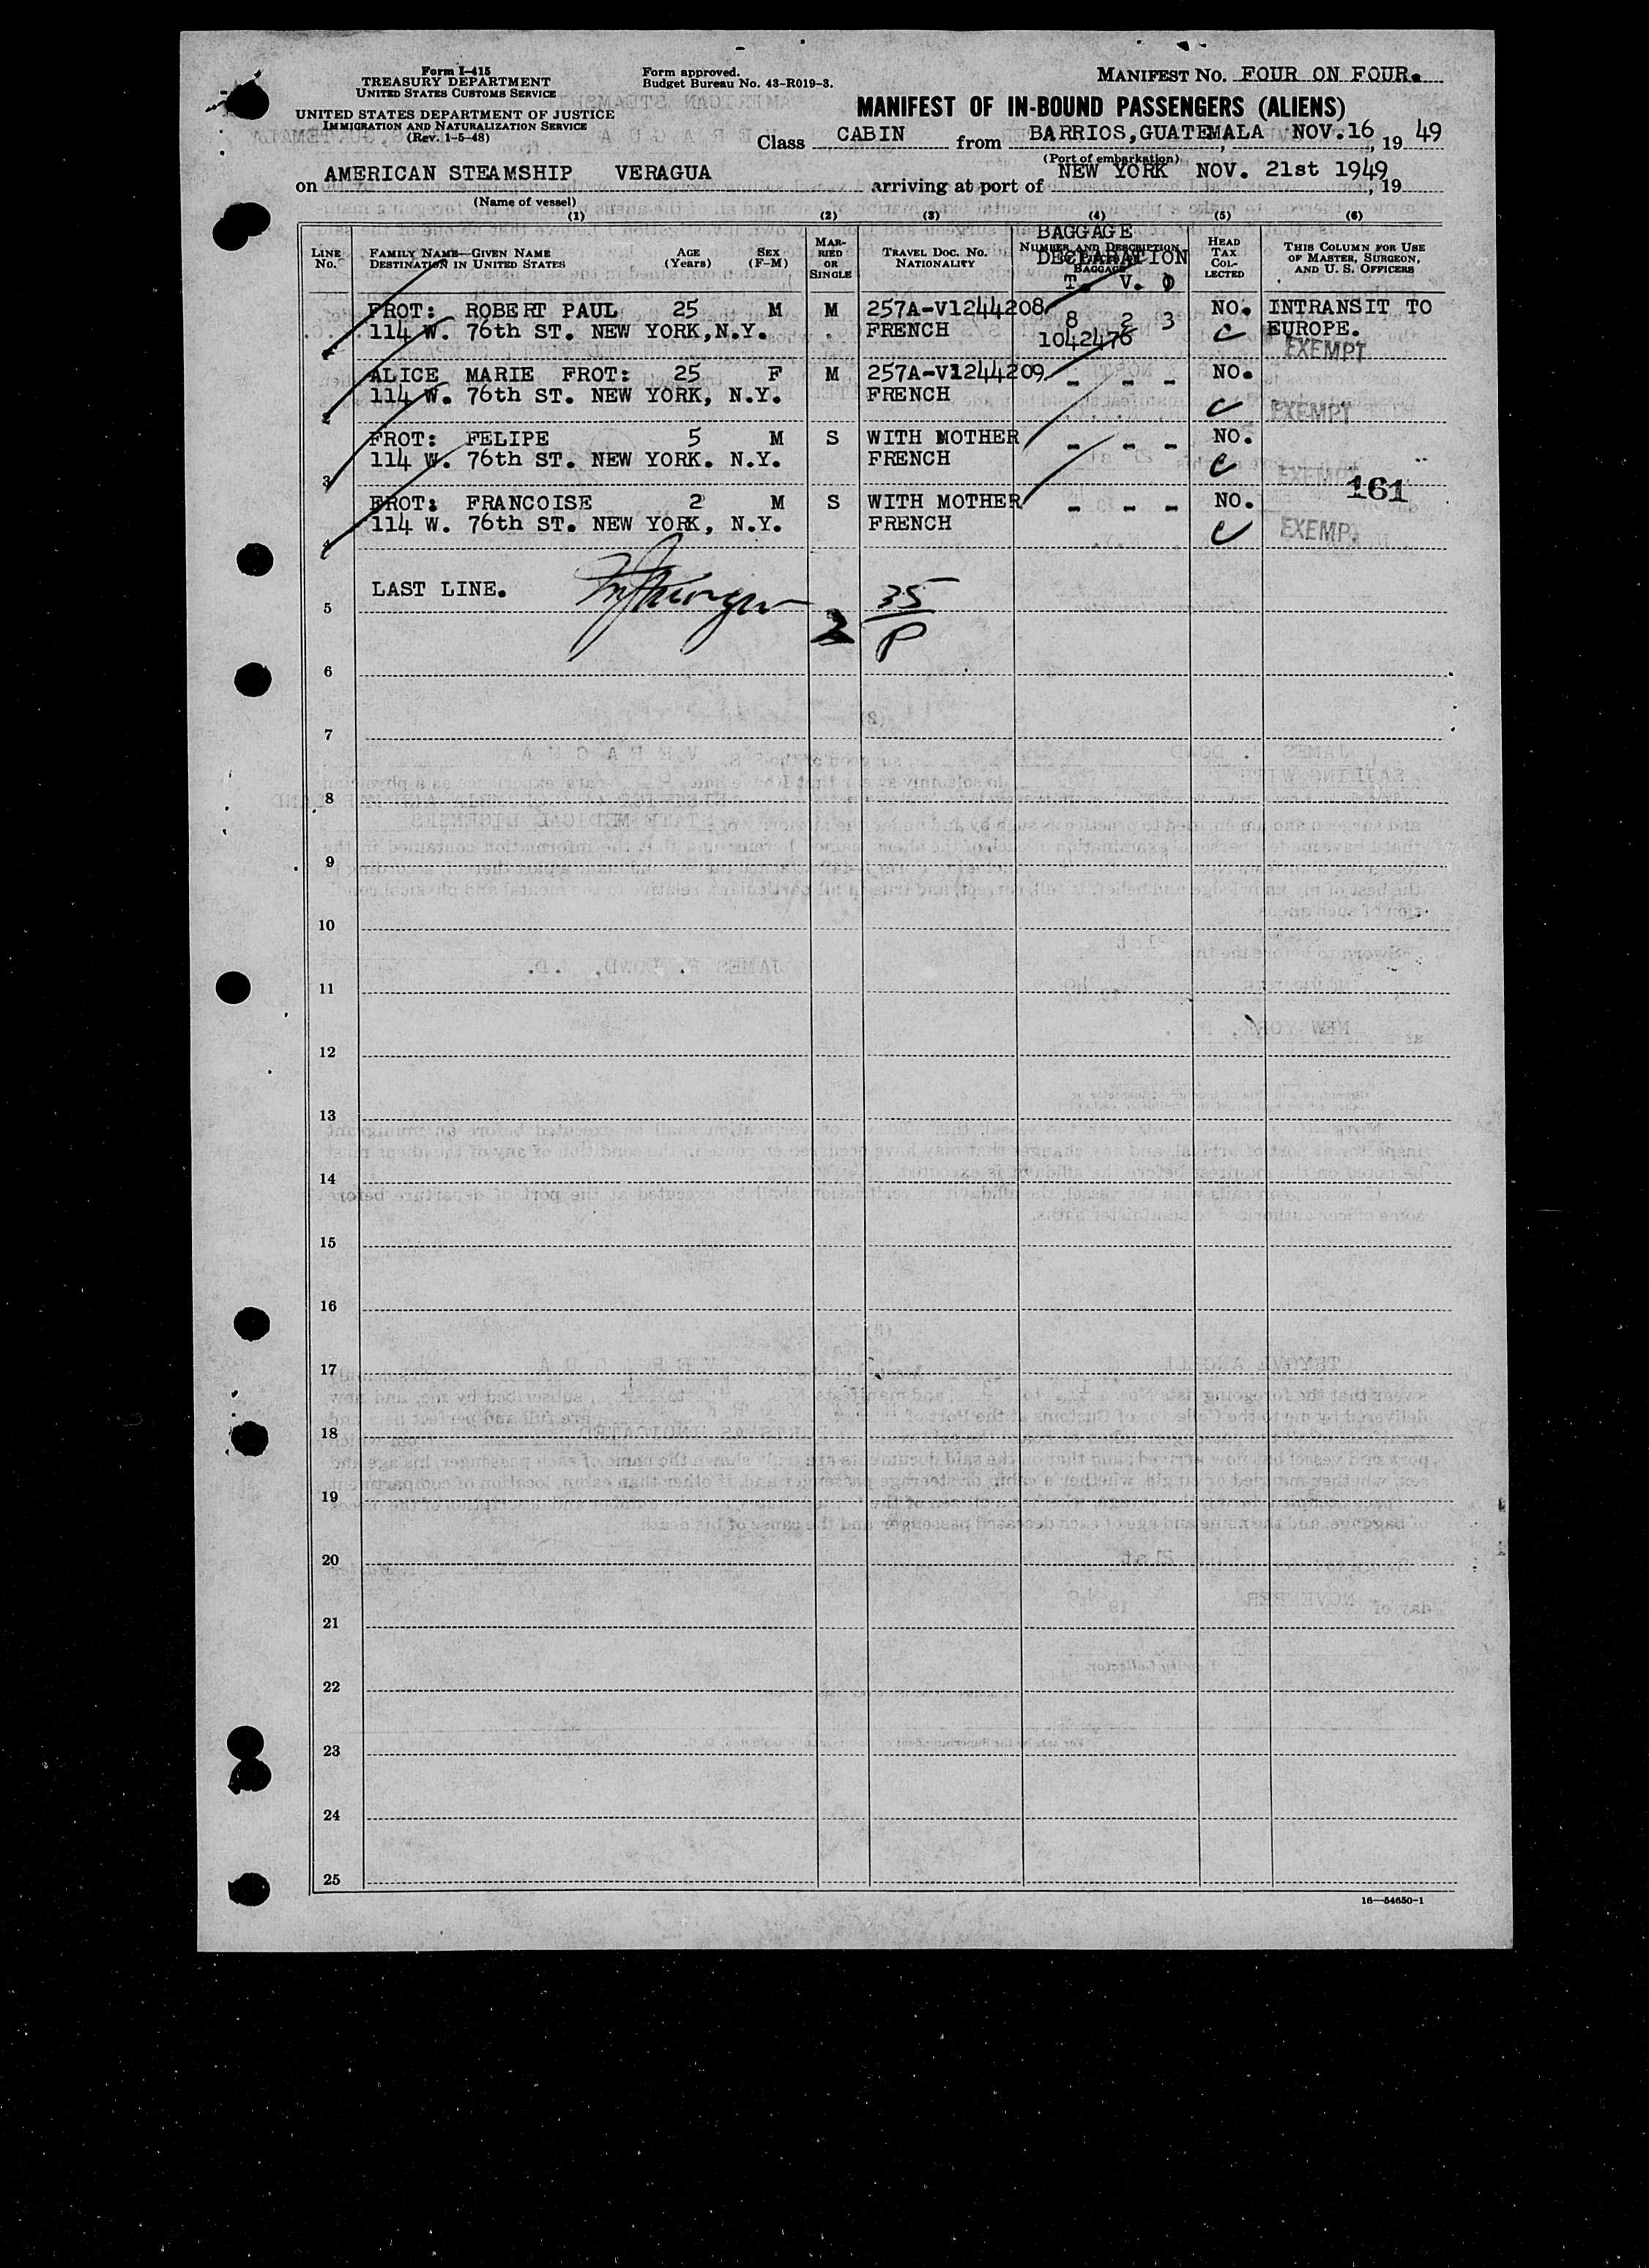 Form I-415
TREASURY DEPARTMENT
UNITED STATES CUSTOMS SERVICE
UNITED STATES DEPARTMENT OF JUSTICE
IMMIGRATION AND NATURALIZATION SERVICE
(Rev. 1-5-48)
Form approved.
Budget Bureau No. 43-R019-3.
MANIFEST NO. FOUR ON FOUR.
MANIFEST OF IN-BOUND PASSENGERS (ALIENS)
Class CABIN from BARRIOS, GUATEMALA NOV. 16, 19 49
(Port of embarkation)
on AMERICAN STEAMSHIP VERAGUA arriving at port of NEW YORK NOV. 21st 1949, 19
(Name of vessel)
(1) (2) (3) (4) (5) (6)
LINE No. FAMILY NAME—GIVEN NAME DESTINATION IN UNITED STATES AGE (Years) SEX (F-M) MARRIED OR SINGLE TRAVEL DOC. NO. NATIONALITY NUMBER AND DESCRIPTION BAGGAGE HEAD TAX COLLECTED THIS COLUMN FOR USE OF MASTER, SURGEON, AND U. S. OFFICERS
BAGGAGE
DECLARATION
T. V. O
1 FROT: ROBERT PAUL 25 M M 257A-V1244208 8 2 3 NO. INTRANSIT TO
114 W. 76th ST. NEW YORK, N.Y. FRENCH 1042476 EUROPE.
EXEMPT
2 ALICE MARIE FROT: 25 F M 257A-V1244209 - - - NO.
114 W. 76th ST. NEW YORK, N.Y. FRENCH EXEMPT
3 FROT: FELIPE 5 M S WITH MOTHER - - - NO.
114 W. 76th ST. NEW YORK. N.Y. FRENCH EXEMPT
161
4 FROT: FRANCOISE 2 M S WITH MOTHER - - - NO.
114 W. 76th ST. NEW YORK, N.Y. FRENCH EXEMP.
LAST LINE.
5
2 35/P
6
7
8
9
10
11
12
13
14
15
16
17
18
19
20
21
22
23
24
25
16—54650-1